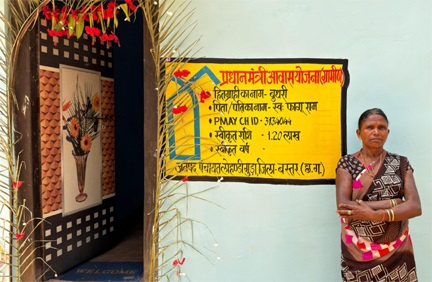 प्रधानमंत्री आवास योजना (ग्रामीण)
हितग्राही का नाम- बुधरी
पिता/पति का नाम- स्व. फागु राम
PMAY CH ID - 3134044
स्वीकृत राशि - 1.20 लाख
स्वीकृत वर्ष -
जनपद पंचायत जिला- बस्तर (छ.ग.)
WELCOME